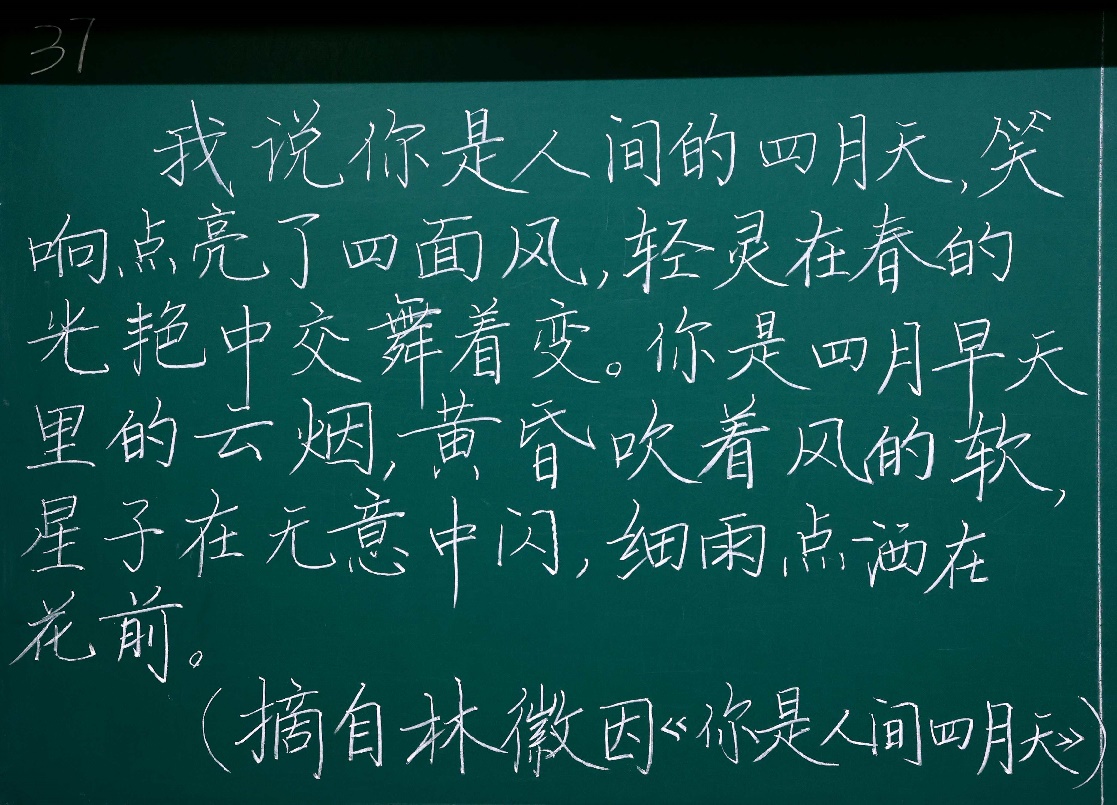 37
我说你是人间的四月天,笑
响点亮了四面风,轻灵在春的
光艳中交舞着变。你是四月早天
里的云烟,黄昏吹着风的软,
星子在无意中闪,细雨点洒在
花前。
(摘自林徽因《你是人间四月天》)